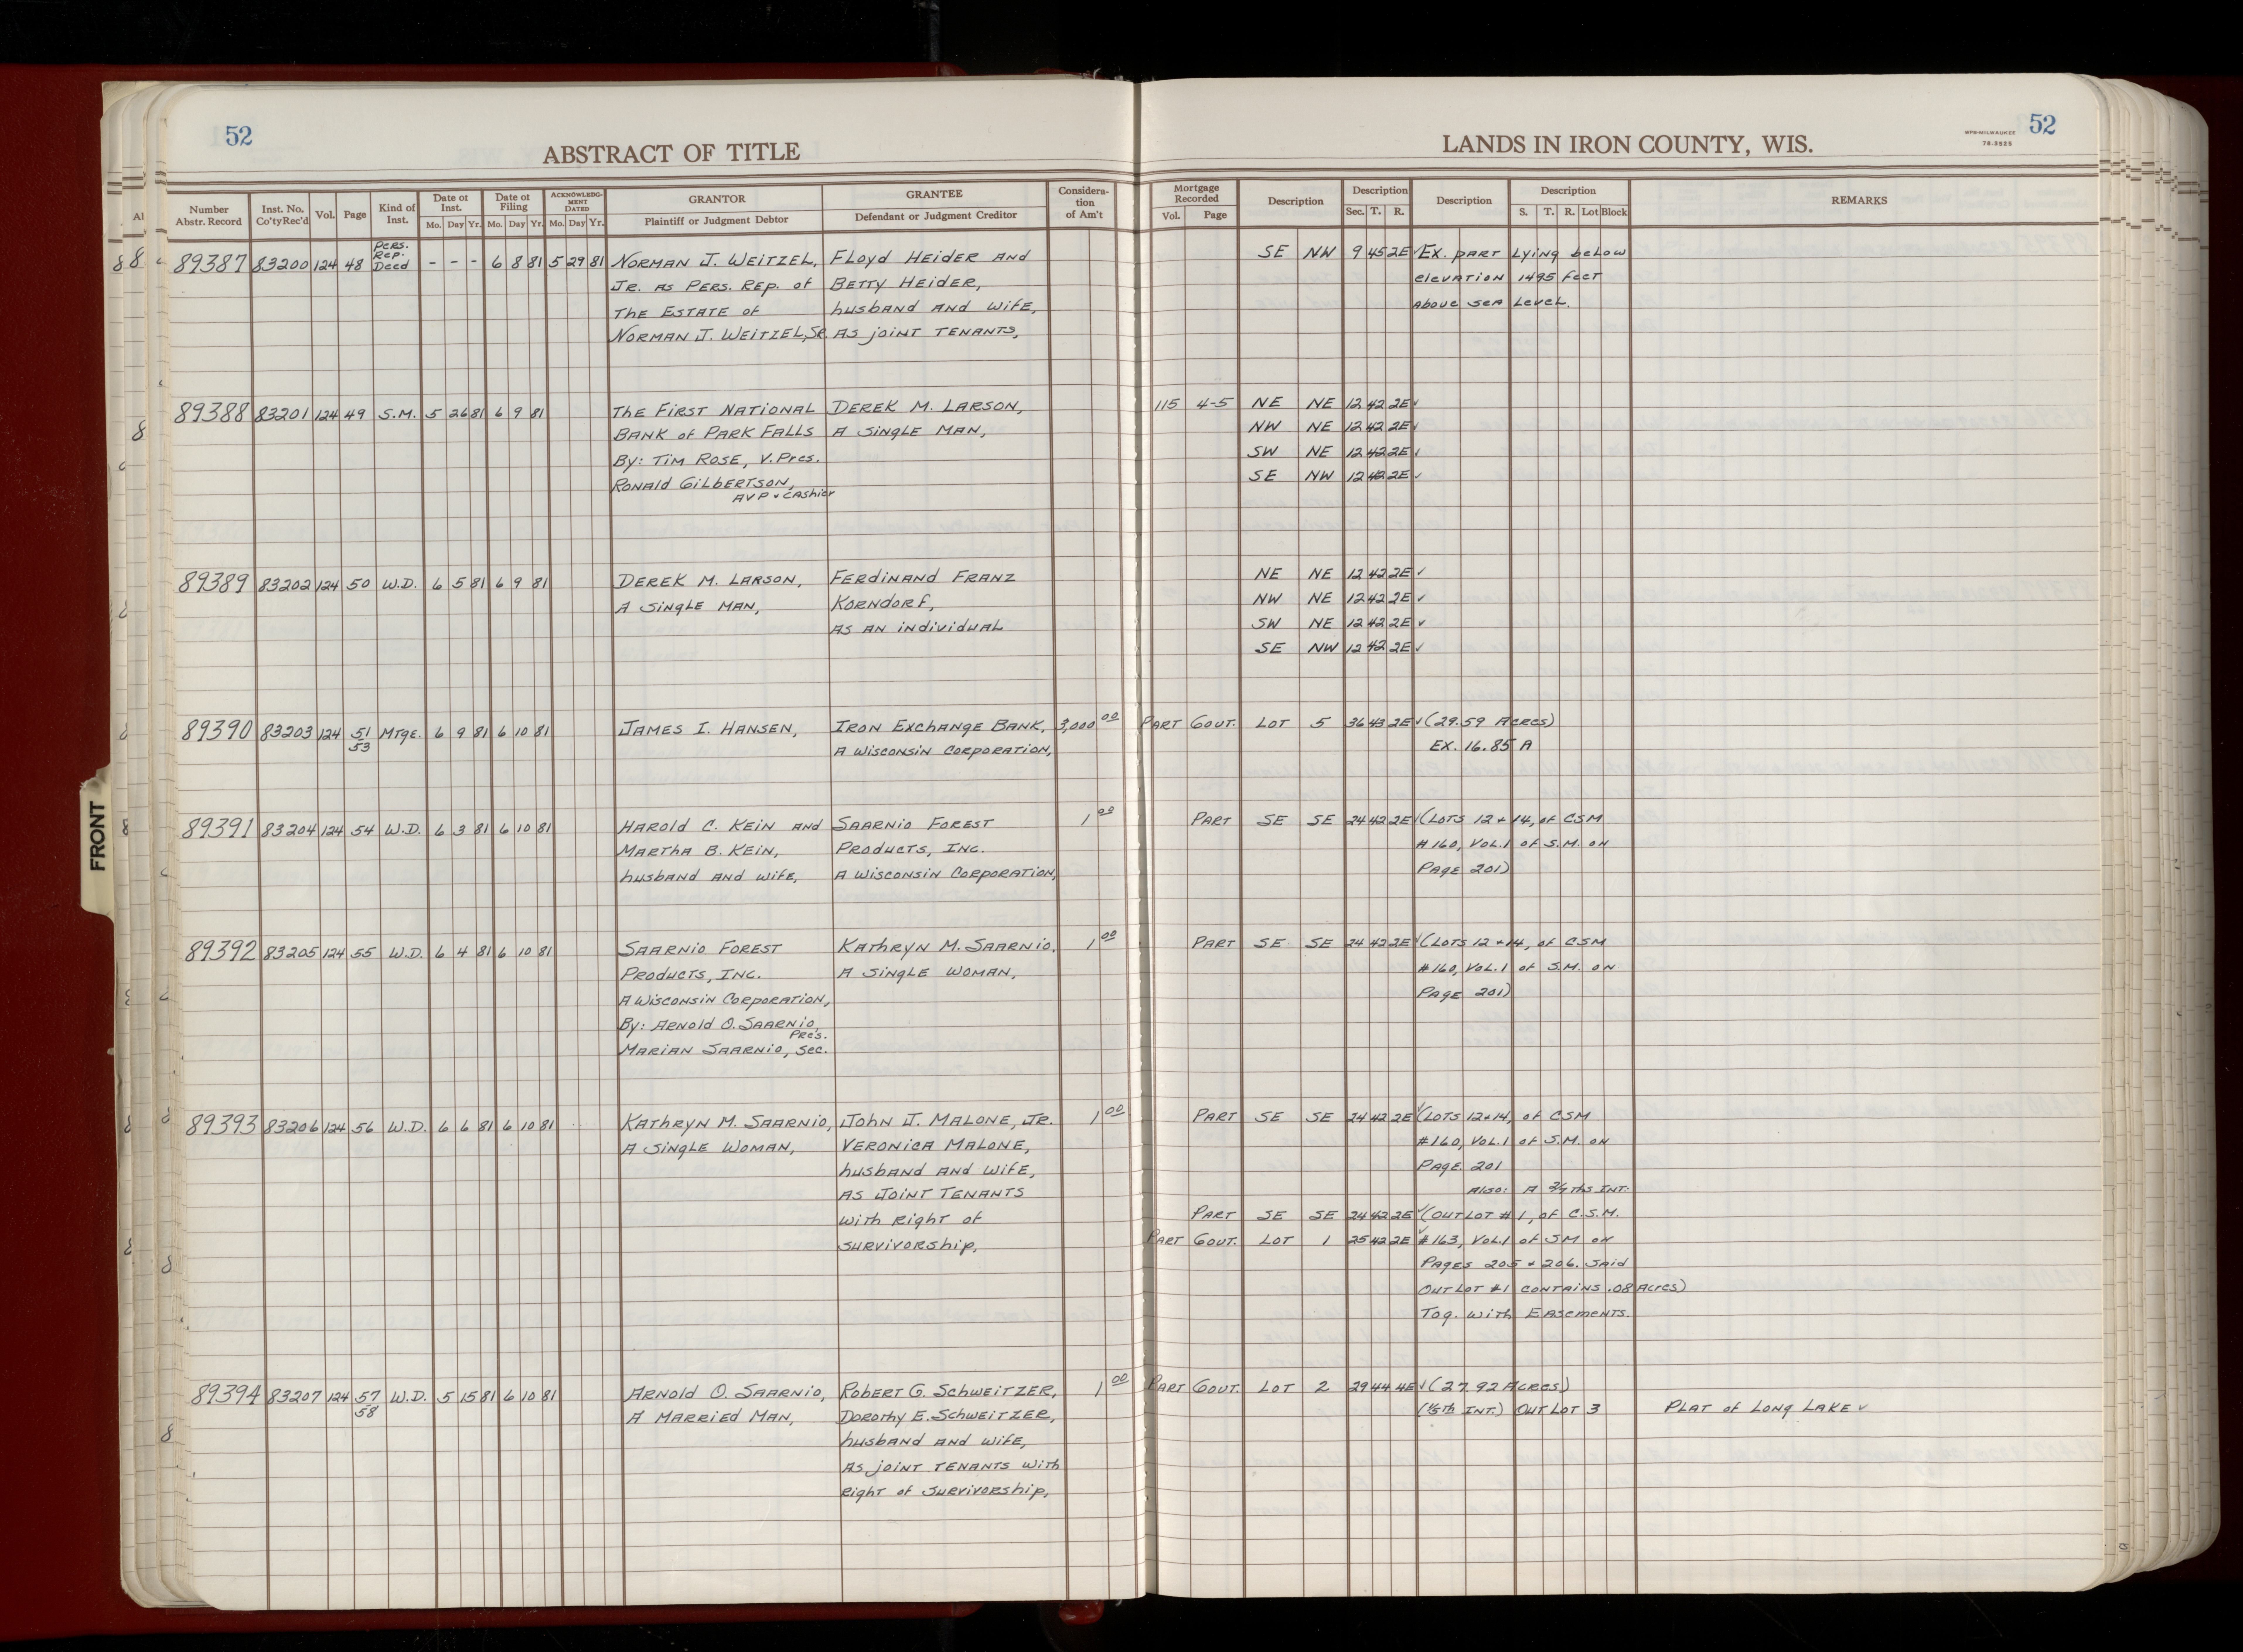 52
ABSTRACT OF TITLE
LANDS IN IRON COUNTY, WIS.
WPB-MILWAUKEE
78-3525
52
Number Abstr. Record | Inst. No. Co'ty Rec'd | Vol. | Page | Kind of Inst. | Date of Inst. Mo. Day Yr. | Date of Filing Mo. Day Yr. | ACKNOWLEDGMENT DATED Mo. Day Yr. | GRANTOR Plaintiff or Judgment Debtor | GRANTEE Defendant or Judgment Creditor | Consideration of Am't | Mortgage Recorded Vol. Page | Description | Description Sec. T. R. | Description | Description S. T. R. Lot Block | REMARKS
89387 83200 124 48 Pers. Rep. Deed - - - 6 8 81 5 29 81 NORMAN J. WEITZEL, Floyd HEIDER AND SE NW 9 45 2E ✓ Ex. PART Lying below
JR. AS PERS. REP. of BETTY HEIDER, elevation 1495 feet
THE ESTATE of husband AND WIFE, Above SEA Level.
NORMAN J. WEITZEL, SR. AS joiNT TENANTS,
89388 83201 124 49 S.M. 5 26 81 6 9 81 The FIRST NATIONAL DEREK M. LARSON, 115 4-5 NE NE 12 42 2E ✓
BANK of PARK FALLS A SiNgLE MAN, NW NE 12 42 2E ✓
By: TIM ROSE, V. Pres. SW NE 12 42 2E ✓
RONAld GiLbERTSON, SE NW 12 42 2E ✓
AVP & CAShier
89389 83202 124 50 W.D. 6 5 81 6 9 81 DEREK M. LARSON, FERdiNAND FRANZ NE NE 12 42 2E ✓
A SiNgLE MAN, KORNdORf, NW NE 12 42 2E ✓
AS AN individUAL SW NE 12 42 2E ✓
SE NW 12 42 2E ✓
89390 83203 124 51 53 MTge. 6 9 81 6 10 81 JAMES I. HANSEN, IRON ExchANge BANK, 3,000 00 PART GOVT. LOT 5 36 43 2E ✓ (29.59 Acres)
A WiscoNSiN CorporATiON, EX. 16.85 A
89391 83204 124 54 W.D. 6 3 81 6 10 81 HAROld C. KEIN AND SAARNiO FOREST 1 00 PART SE SE 24 42 2E ✓ (LOTS 12 & 14, of CSM
MARThA B. KEiN, PROducTS, INC. #160, VOL.1 of S.M. ON
husbANd AND wife, A WiscoNSiN CorporATiON, PAge 201)
89392 83205 124 55 W.D. 6 4 81 6 10 81 SAARNiO FOREST KAThRYN M. SAARNiO, 1 00 PART SE SE 24 42 2E ✓ (LOTS 12 & 14, of CSM
PROducTS, INC. A SiNgLE WOMAN, #160, VOL.1 of S.M. ON
A WiscoNSiN CorporATiON, PAge 201)
By: ARNOld O. SAARNiO, Pres.
MARiAN SAARNiO, Sec.
89393 83206 124 56 W.D. 6 6 81 6 10 81 KAThRYN M. SAARNiO, JOhN J. MALONE, JR. 1 00 PART SE SE 24 42 2E ✓ (LOTS 12 & 14, of CSM
A SiNgLE WOMAN, VERONiCA MALONE, #160, VOL.1 of S.M. ON
husbANd AND WiFE, PAge 201
AS JOiNT TENANTS Also: A 2/7 ThS INT:
WiTh Right of PART SE SE 24 42 2E ✓ (OUTLOT #1, of C.S.M.
SURVIVORShip, PART GOVT. LOT 1 25 42 2E ✓ #163, VOL.1 of SM ON
PAges 205 & 206. SAid
OUTLOT #1 CONTAiNS .08 Acres)
Tog. wiTh EAsemeNTs.
89394 83207 124 57 58 W.D. 5 15 81 6 10 81 ARNOld O. SAARNiO, RobeRT G. SchWEiTZER, 1 00 PART GOVT. LOT 2 29 44 4E ✓ (27.92 Acres)
A MARRiEd MAN, DOROThy E. SchWEiTZER, (1/5th INT.) OUTLOT 3 PLAT of LONg LAKE ✓
husbANd AND wiFE,
AS joiNT TENANTS WiTh
Right of SURVIVORship,
FRONT